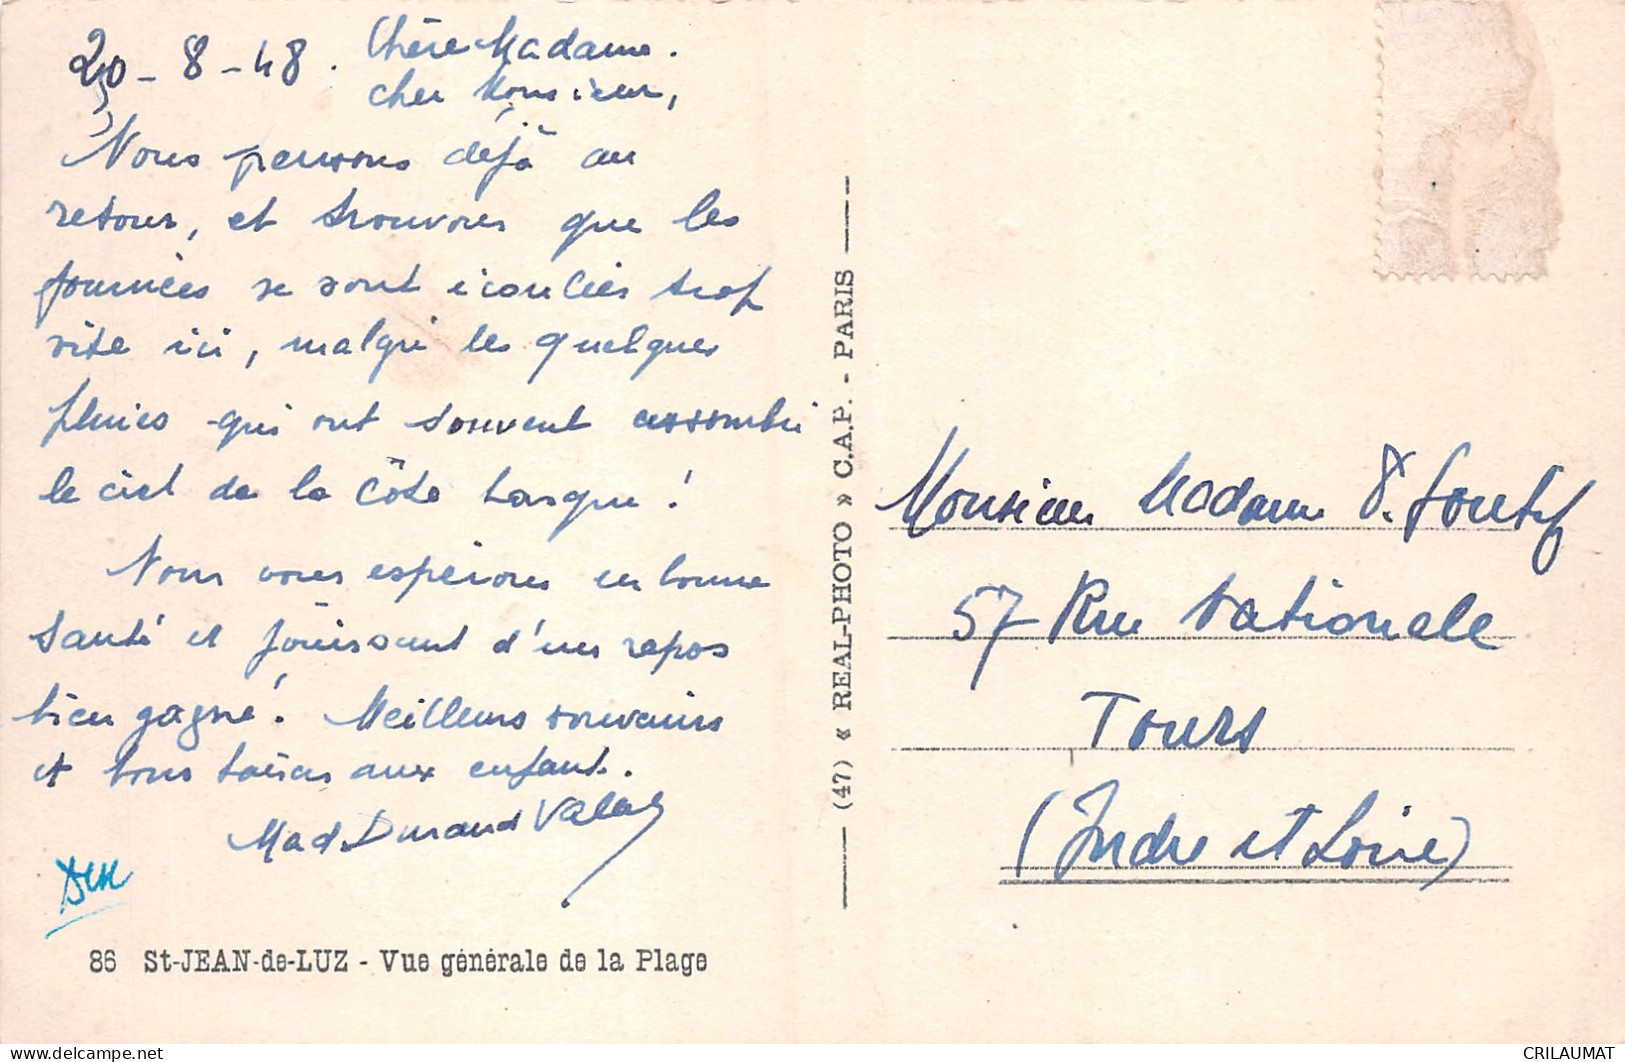 20-8-48. Chère Madame.
cher Monsieur,
Nous pensons déjà au
retour, et trouvons que les
journées se sont écoulées trop
vite ici, malgré les quelques
pluies qui ont souvent assombri
le ciel de la Côte basque!
Nous vous espérons en bonne
santé et jouissant d'un repos
bien gagné! Meilleurs souvenirs
et bons baisers aux enfants.
Mad. Durand
86 St-JEAN-de-LUZ - Vue générale de la Plage
(47) « REAL-PHOTO » C.A.P. - PARIS
Monsieur Madame
57 Rue Nationale
Tours
(Indre et Loire)
CRILAUMAT